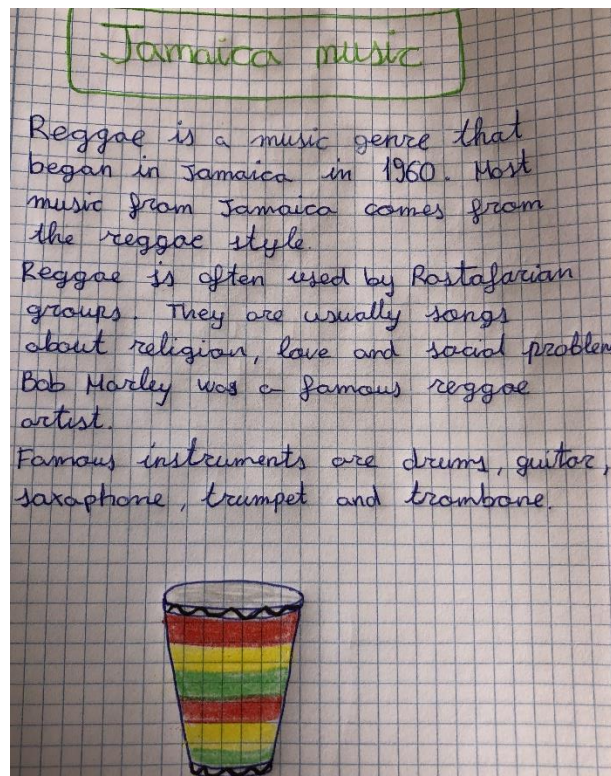 Jamaica music
Reggae is a music genre that
began in Jamaica in 1960. Most
music from Jamaica comes from
the reggae style.
Reggae is often used by Rastafarian
groups. They are usually songs
about religion, love and social problem
Bob Marley was a famous reggae
artist.
Famous instruments are drums, guitar,
saxaphone, trumpet and trombone.